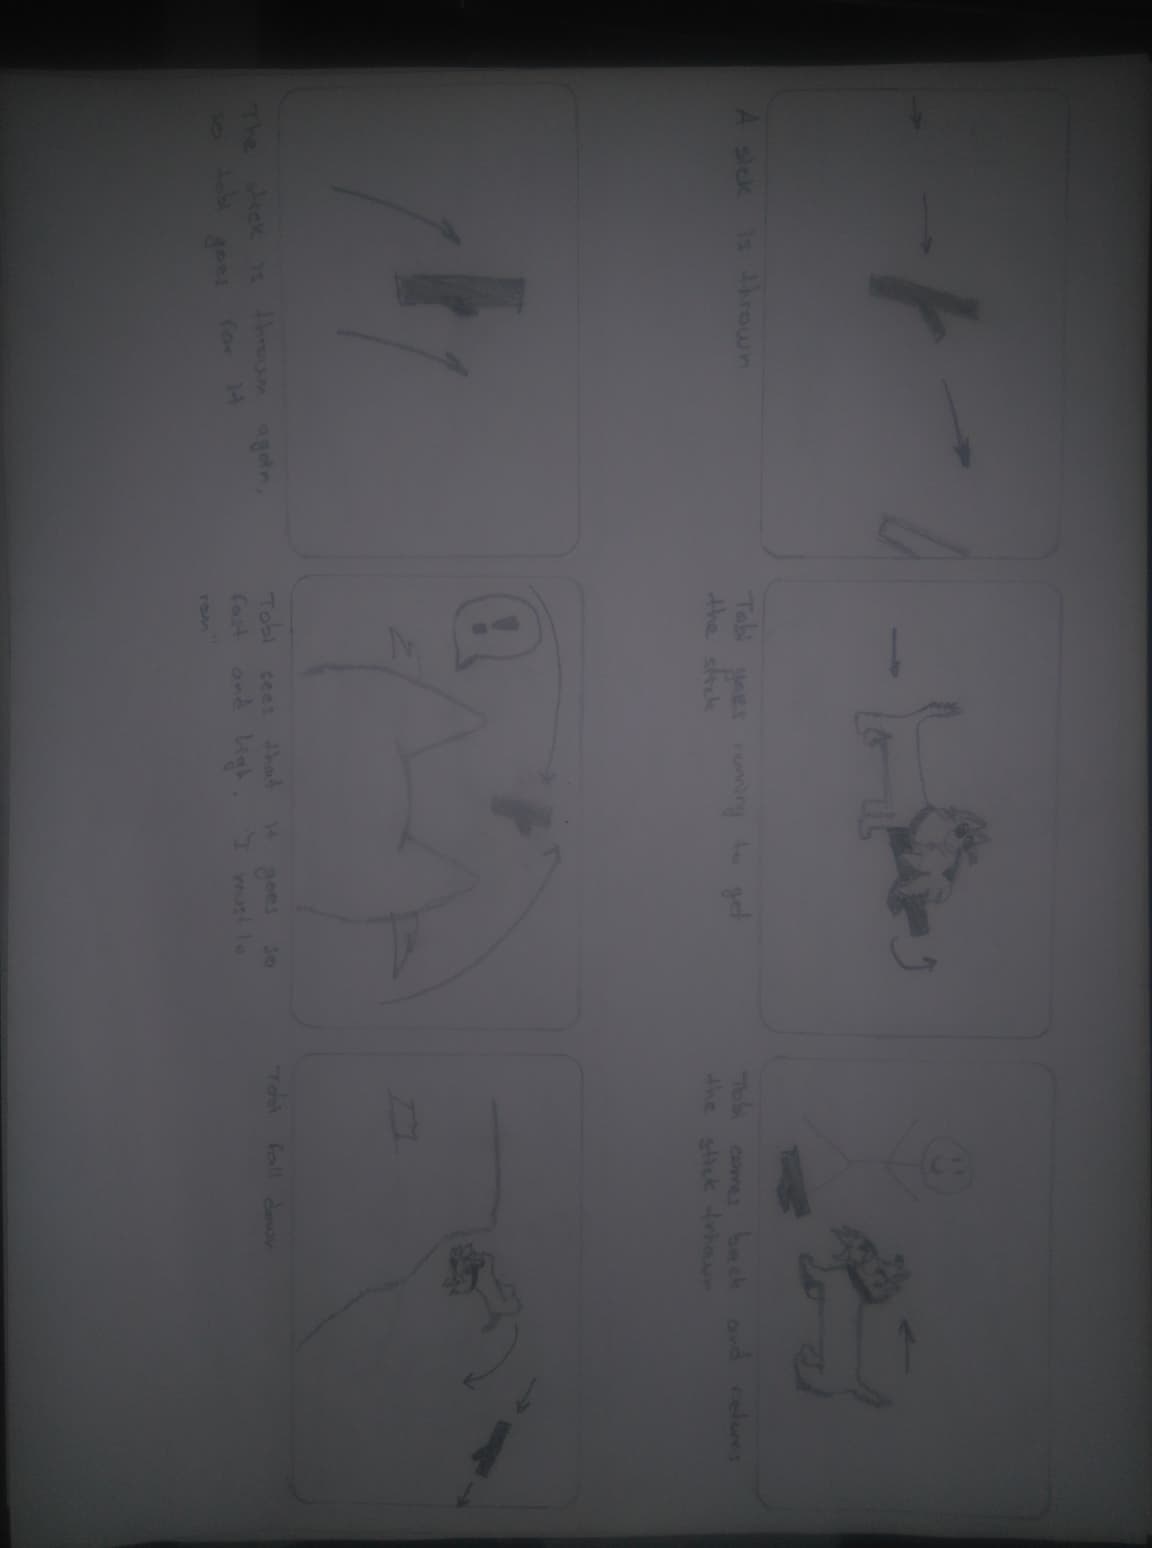 A sick is thrown
Tobi goes runing to get
the stick
Tobi comes back and returns
the stick
The stick is thrown again,
so tobi goes for it
!
Tobi sees that it goes so
fast and high. "I must to
run"
Tobi fall down